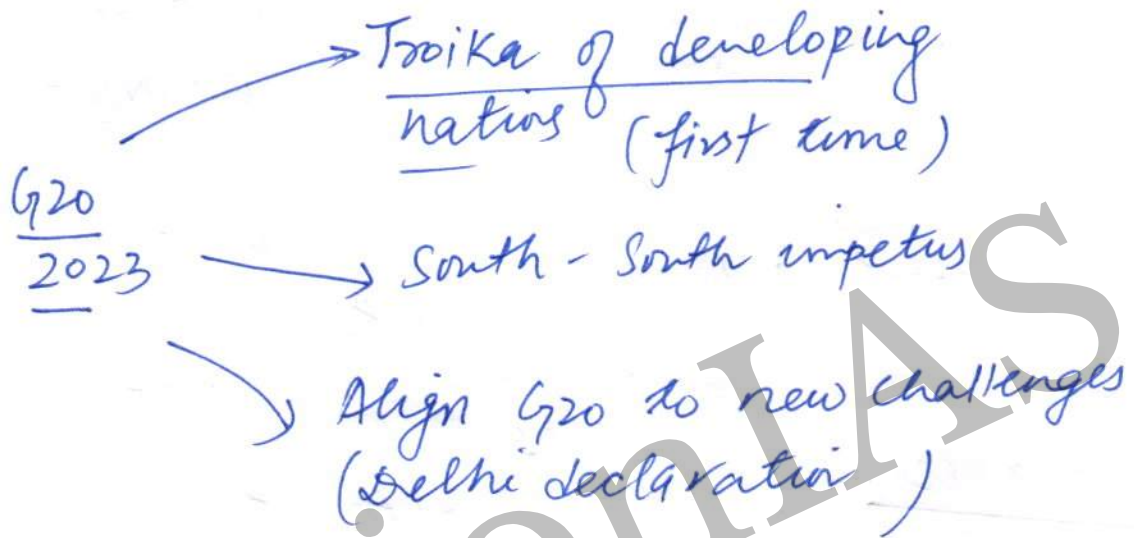 Troika of developing
nations (first time)
G20
2023
South - South impetus
Align G20 to new challenges
(Delhi declaration)
ionIAS